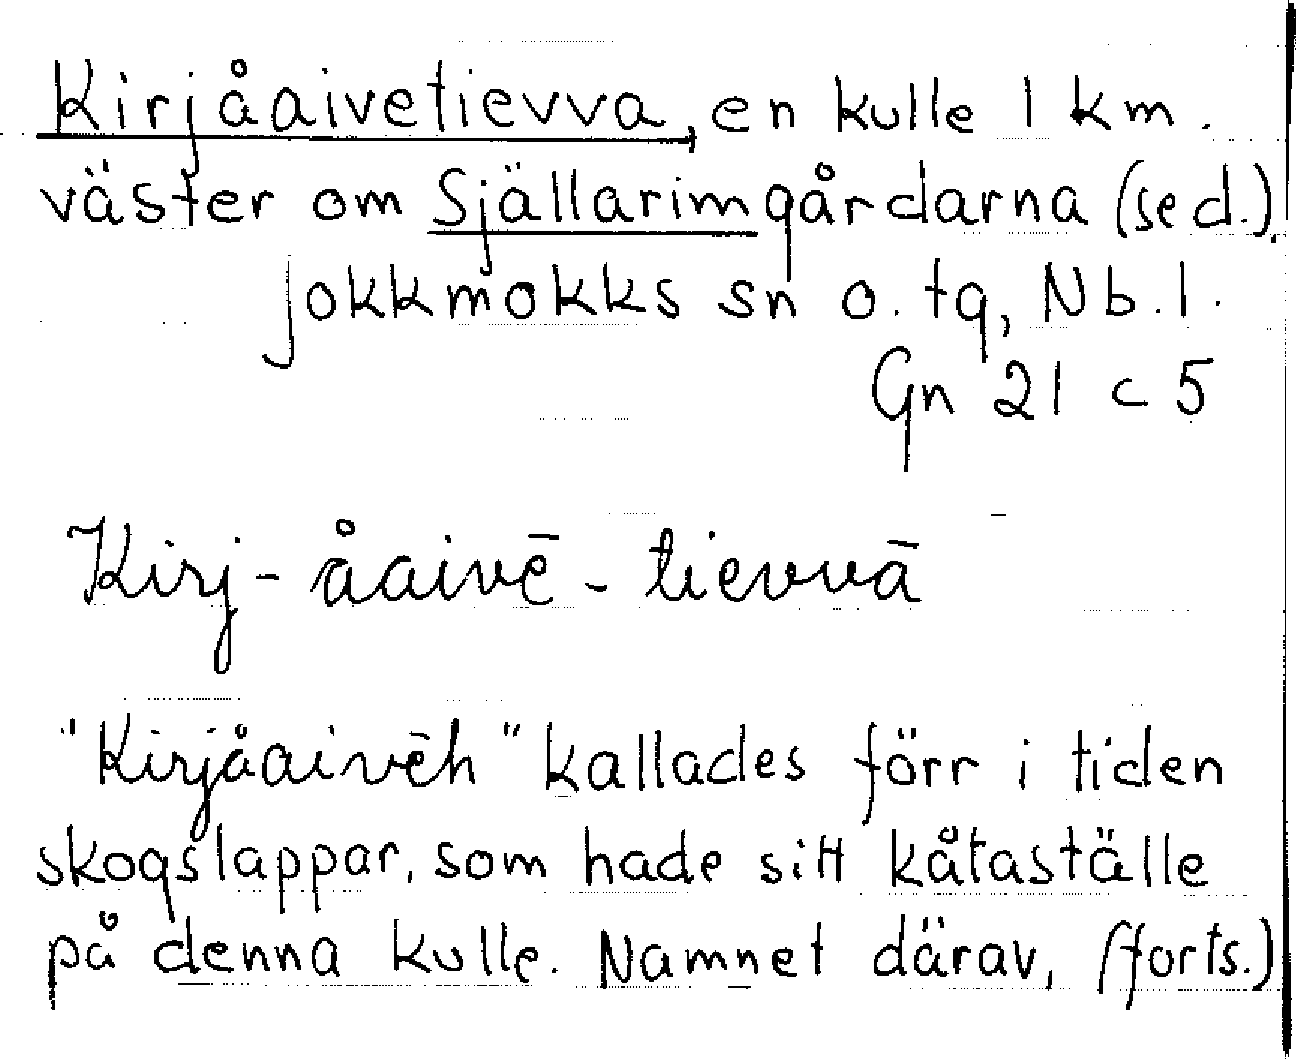 Kirjåaivetievva, en kulle 1 km.
väster om Själlarimgårdarna (se d.),
Jokkmokks sn o. tg, Nb. l.
Gn 21 c 5
Kirj - åaivē - tievvā
"Kirjåaivēh" kallades förr i tiden
skogslappar, som hade sitt kåtaställe
på denna kulle. Namnet därav, (forts.)